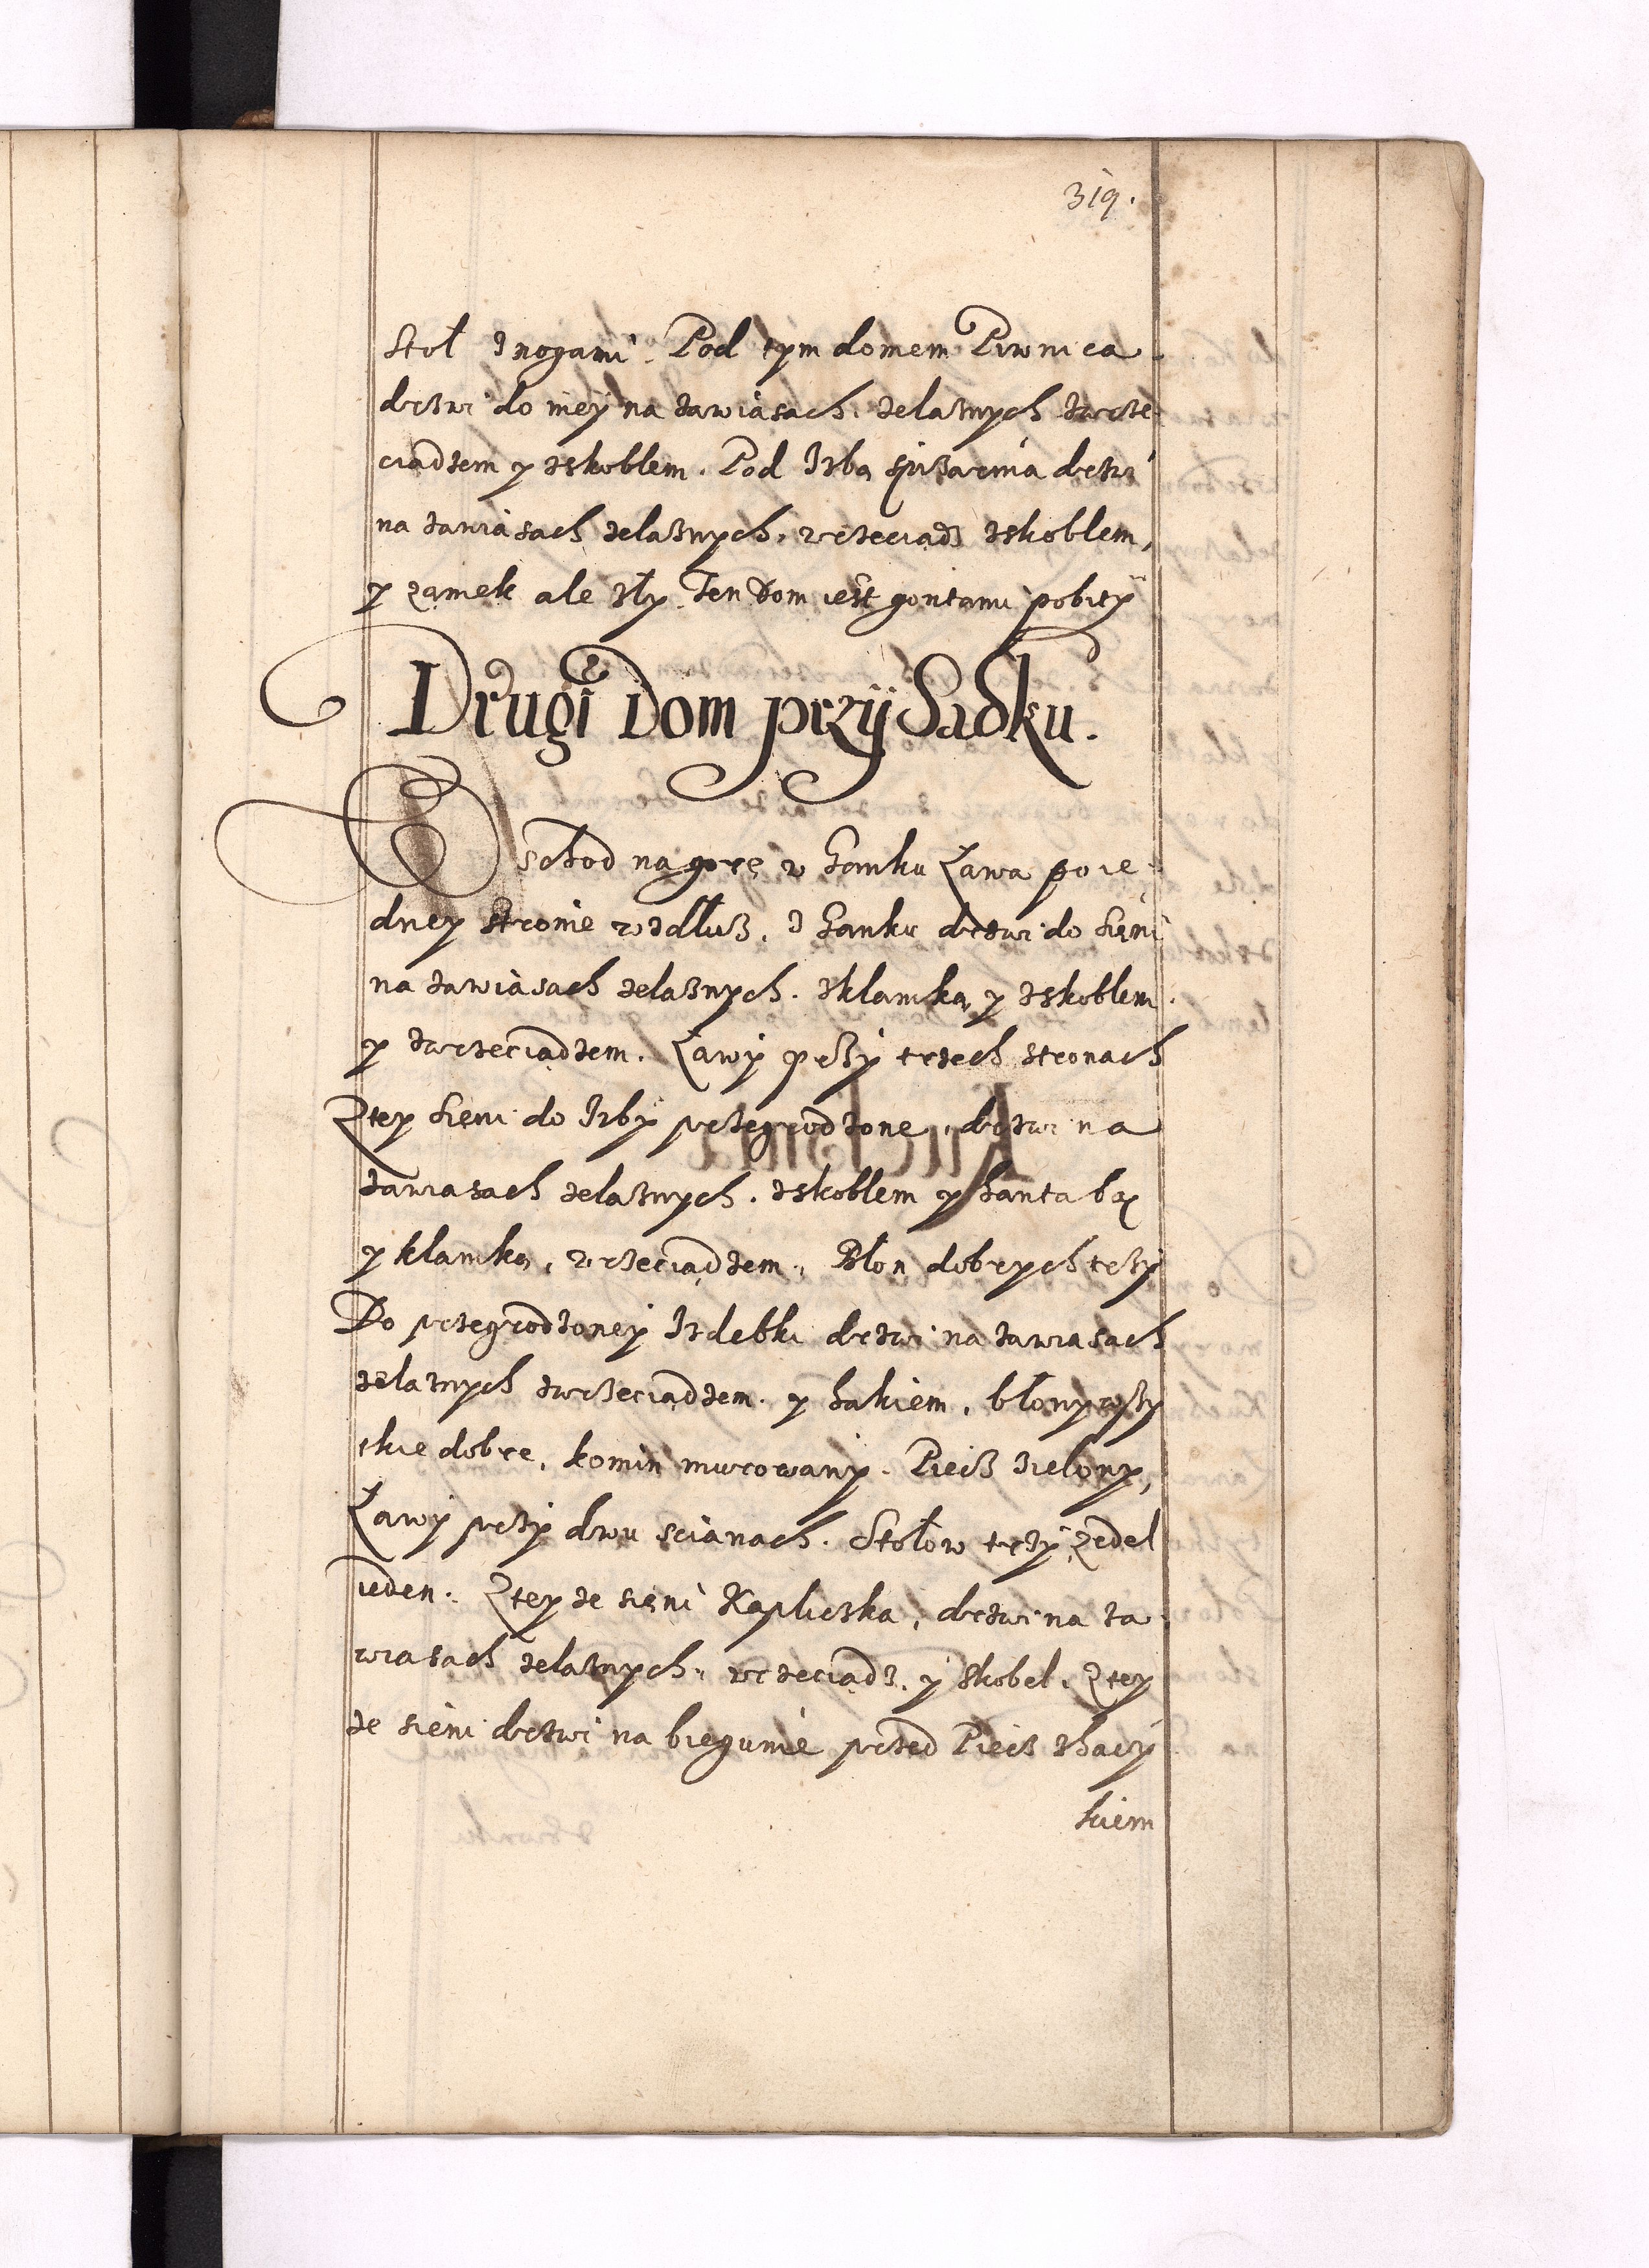 319.
Stoł z nogami. Pod tym domem Piwnica
drzwi do niey na zawiasach. zelaznych zwrze
ciadzem y zskoblem. Pod Izbą spizarnia drzwi
na zawiasach zelaznych, wrzeciadz zskoblem,
y zamek ale zły. Ten Dom iest gontami pobity
Drugi Dom przy Sadku.
Wschod na gorę w Ganku Ława po ie
dney stronie wzdłuz, z Ganku drzwi do sięni
na zawiasach zelaznych. zklamką y zskoblem
y zwrzeciadzem. Ławy przy trzech stronach
Ztey sieni do Izby przegrodzone, drzwi na
zawiasach zelaznych. zskoblem y hantabą
y klamką, wrzeciądzem, Błon dobrych trzy
Do przegrodzoney Izdebki drzwi na zawiasach
zelaznych zwrzeciądzem. y hakiem, błony wszy
tkie dobre, komin murowany. Piecz zielony,
Ławy przy dwu scianach. Stołow trzy, zedel
ieden. Ztey ze sięni Kapliczka, drzwi na za
wiasach zelaznych, wrzeciadz, y skobel. Ztey
ze sieni drzwi na biegunie przed Piecz zhaczy
kiem